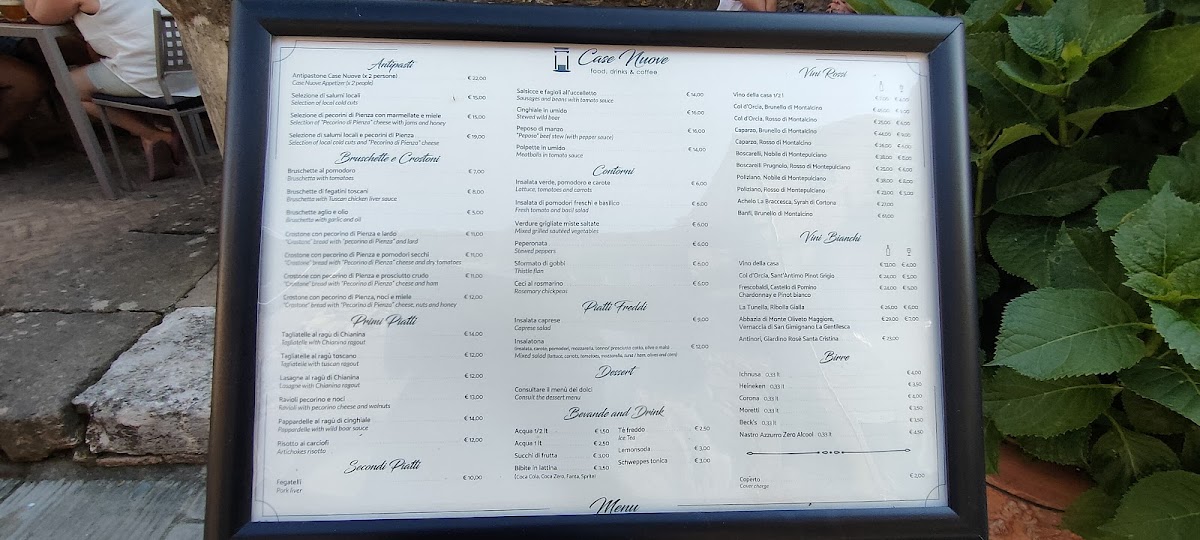 Antipasti
Antipastone Case Nuove (x 2 persone) € 22,00
Case Nuove Appetizer (x 2 people)
Selezione di salumi locali € 15,00
Selection of local cold cuts
Selezione di pecorini di Pienza con marmellate e miele € 15,00
Selection of "Pecorino di Pienza" cheese with jams and honey
Selezione di salumi locali e pecorini di Pienza € 19,00
Selection of local cold cuts and "Pecorino di Pienza" cheese
Bruschette e Crostoni
Bruschette al pomodoro € 7,00
Bruschetta with tomatoes
Bruschette di fegatini toscani € 8,00
Bruschetta with Tuscan chicken liver sauce
Bruschette aglio e olio € 5,00
Bruschetta with garlic and oil
Crostone con pecorino di Pienza e lardo € 11,00
"Crostone" bread with "pecorino di Pienza" and lard
Crostone con pecorino di Pienza e pomodori secchi € 11,00
"Crostone" bread with "Pecorino di Pienza" cheese and dry tomatoes
Crostone con pecorino di Pienza e prosciutto crudo € 11,00
"Crostone" bread with "Pecorino di Pienza" cheese and ham
Crostone con pecorino di Pienza, noci e miele € 12,00
"Crostone" bread with "Pecorino di Pienza" cheese, nuts and honey
Primi Piatti
Tagliatelle al ragù di Chianina € 14,00
Tagliatelle with Chianina ragout
Tagliatelle al ragù toscano € 12,00
Tagliatelle with tuscan ragout
Lasagne al ragù di Chianina € 12,00
Lasagna with Chianina ragout
Ravioli pecorino e noci € 13,00
Ravioli with pecorino cheese and walnuts
Pappardelle al ragù di cinghiale € 14,00
Pappardelle with wild boar sauce
Risotto ai carciofi € 12,00
Artichokes risotto
Secondi Piatti
Fegatelli € 10,00
Pork liver
Case Nuove
food, drinks & coffee
Salsicce e fagioli all'uccelletto € 14,00
Sausages and beans with tomato sauce
Cinghiale in umido € 16,00
Stewed wild boar
Peposo di manzo € 16,00
"Peposo" beef stew (with pepper sauce)
Polpette in umido € 14,00
Meatballs in tomato sauce
Contorni
Insalata verde, pomodoro e carote € 6,00
Lattuce, tomatoes and carrots
Insalata di pomodori freschi e basilico € 6,00
Fresh tomato and basil salad
Verdure grigliate miste saltate € 6,00
Mixed grilled sautéed vegetables
Peperonata € 6,00
Stewed peppers
Sformato di gobbi € 6,00
Thistle flan
Ceci al rosmarino € 6,00
Rosemary chickpeas
Piatti Freddi
Insalata caprese € 9,00
Caprese salad
Insalatona € 12,00
Mixed salad
Dessert
Consultare il menù dei dolci
Consult the dessert menu
Bevande and Drink
Acqua 1/2 lt € 1,50
Acqua 1 lt € 2,50
Succhi di frutta € 3,00
Bibite in lattina € 3,50
(Coca Cola, Coca Zero, Fanta, Sprite)
Tè freddo € 2,50
Ice Tea
Lemonsoda € 3,00
Schweppes tonica € 3,00
Menu
Vini Rossi
Vino della casa 1/2 l
Col d'Orcia, Brunello di Montalcino
Col d'Orcia, Rosso di Montalcino
Caparzo, Brunello di Montalcino
Caparzo, Rosso di Montalcino
Boscarelli, Nobile di Montepulciano
Boscarelli Prugnolo, Rosso di Montepulciano
Poliziano, Nobile di Montepulciano
Poliziano, Rosso di Montepulciano
Achelo La Braccesca, Syrah di Cortona
Banfi, Brunello di Montalcino
Vini Bianchi
Vino della casa
Col d'Orcia, Sant'Antimo Pinot Grigio
Frescobaldi, Castello di Pomino
Chardonnay e Pinot bianco
La Tunella, Ribolla Gialla
Abbazia di Monte Oliveto Maggiore,
Vernaccia di San Gimignano La Gentilesca
Antinori, Giardino Rosè Santa Cristina
Birre
Ichnusa 0,33 lt € 4,00
Heineken 0,33 lt € 3,50
Corona 0,33 lt
Moretti 0,33 lt € 3,50
Beck's 0,33 lt € 3,50
Nastro Azzurro Zero Alcool 0,33 lt
Coperto € 2,00
Cover charge